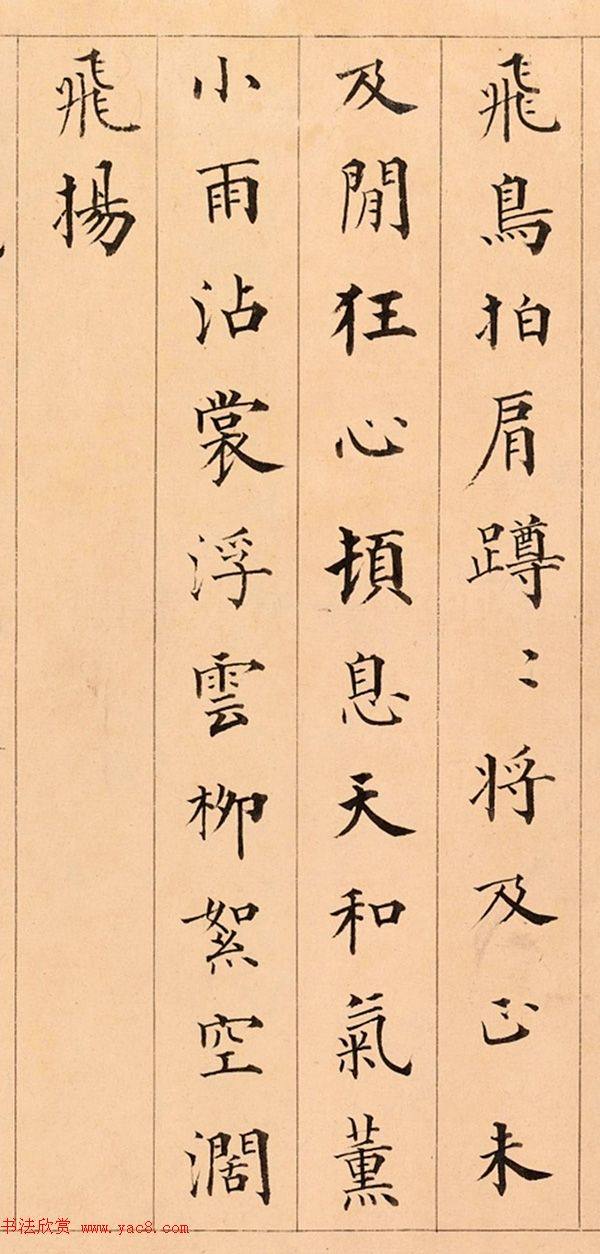 飛鳥拍肩蹲〻将及正未
及閒狂心頓息天和氣薰
小雨沾裳浮雲柳絮空濶
飛揚
书法欣赏 www.yac8.com